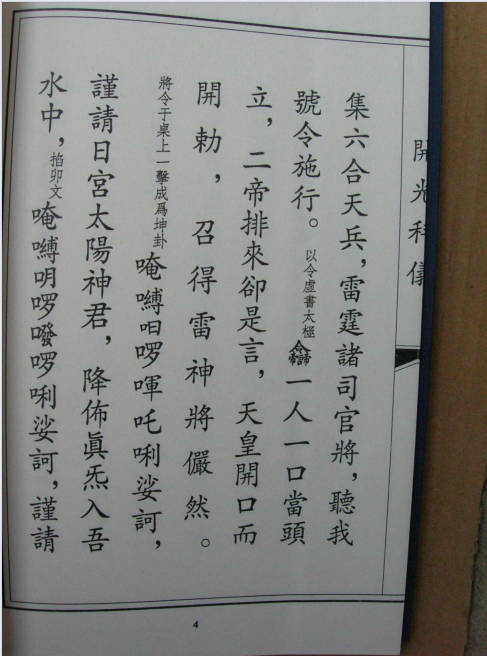 開光科儀
集六合天兵，雷霆諸司官將，聽我
號令施行。以令虛書太極 一人一口當頭
立，二帝排來卻是言，天皇開口而
開勅，召得雷神將儼然。
將令于桌上一擊成爲坤卦 唵嚩呬啰喗吒唎娑訶，
謹請日宮太陽神君，降佈眞炁入吾
水中，掐卯文 唵嚩明啰𠽾啰唎娑訶，謹請
4